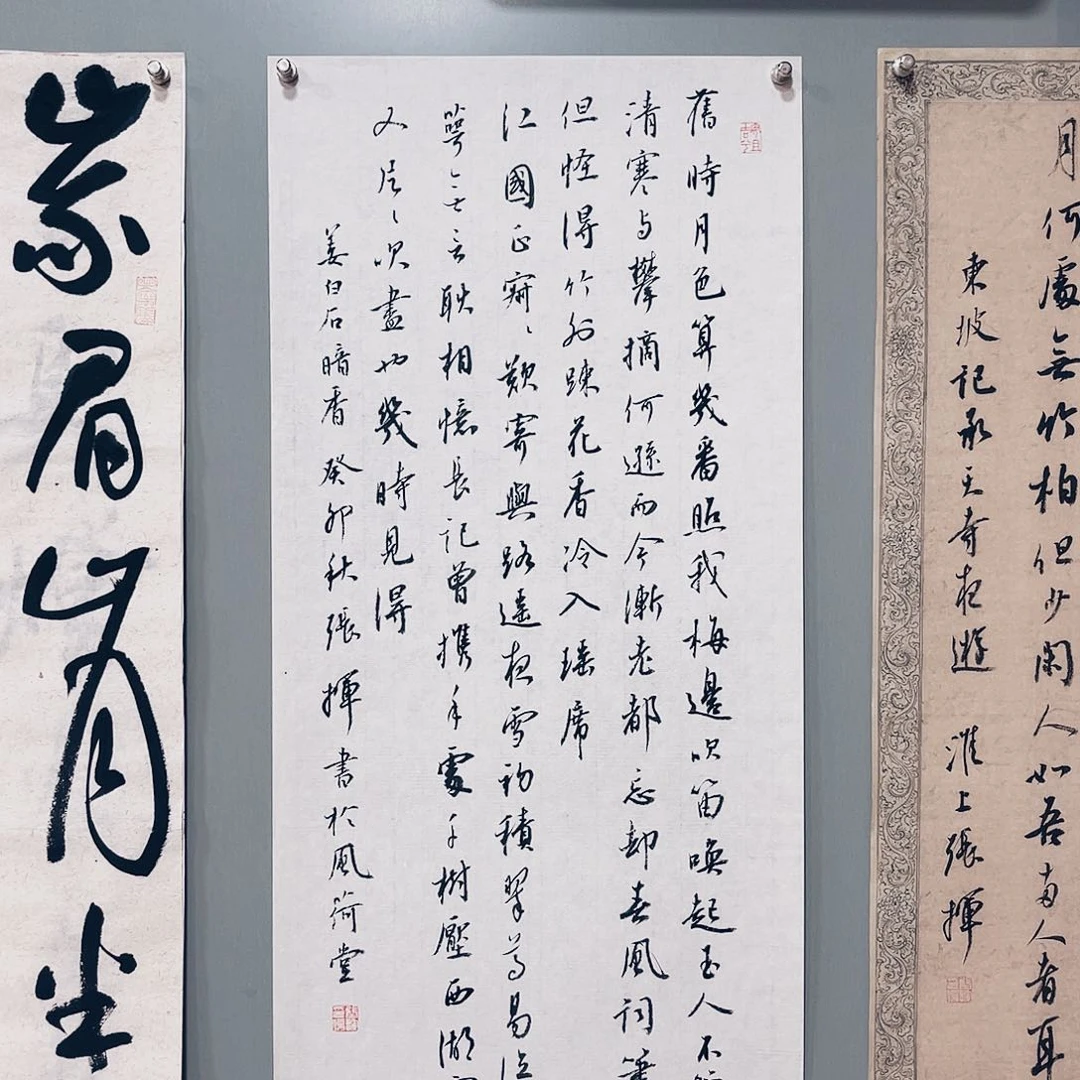 月何處無竹柏但少閑人如吾兩人者耳
東坡記承天寺夜遊 淮上張揮
舊時月色算幾番照我梅邊吹笛喚起玉人不管
清寒與攀摘何遜而今漸老都忘卻春風詞筆
但怪得竹外疎花香冷入瑤席
江國正寂〻歎寄與路遙夜雪初積翠尊易泣
萼無言耿相憶長記曾攜手處千樹壓西湖
又片〻吹盡也幾時見得
姜白石暗香 癸卯秋張揮書於風荷堂
眉
坐